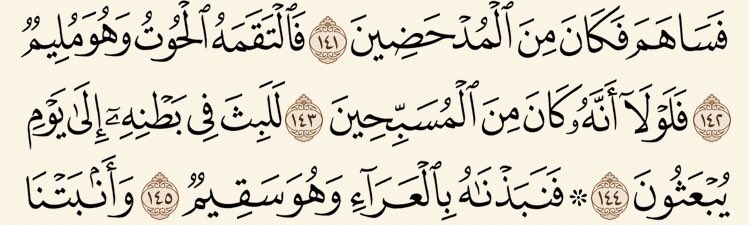 فَسَاهَمَ فَكَانَ مِنَ ٱلۡمُدۡحَضِينَ ١٤١ فَٱلۡتَقَمَهُ ٱلۡحُوتُ وَهُوَ مُلِيمٞ
١٤٢ فَلَوۡلَآ أَنَّهُۥ كَانَ مِنَ ٱلۡمُسَبِّحِينَ ١٤٣ لَلَبِثَ فِي بَطۡنِهِۦٓ إِلَىٰ يَوۡمِ
يُبۡعَثُونَ ١٤٤ ۞ فَنَبَذۡنَٰهُ بِٱلۡعَرَآءِ وَهُوَ سَقِيمٞ ١٤٥ وَأَنۢبَتۡنَا